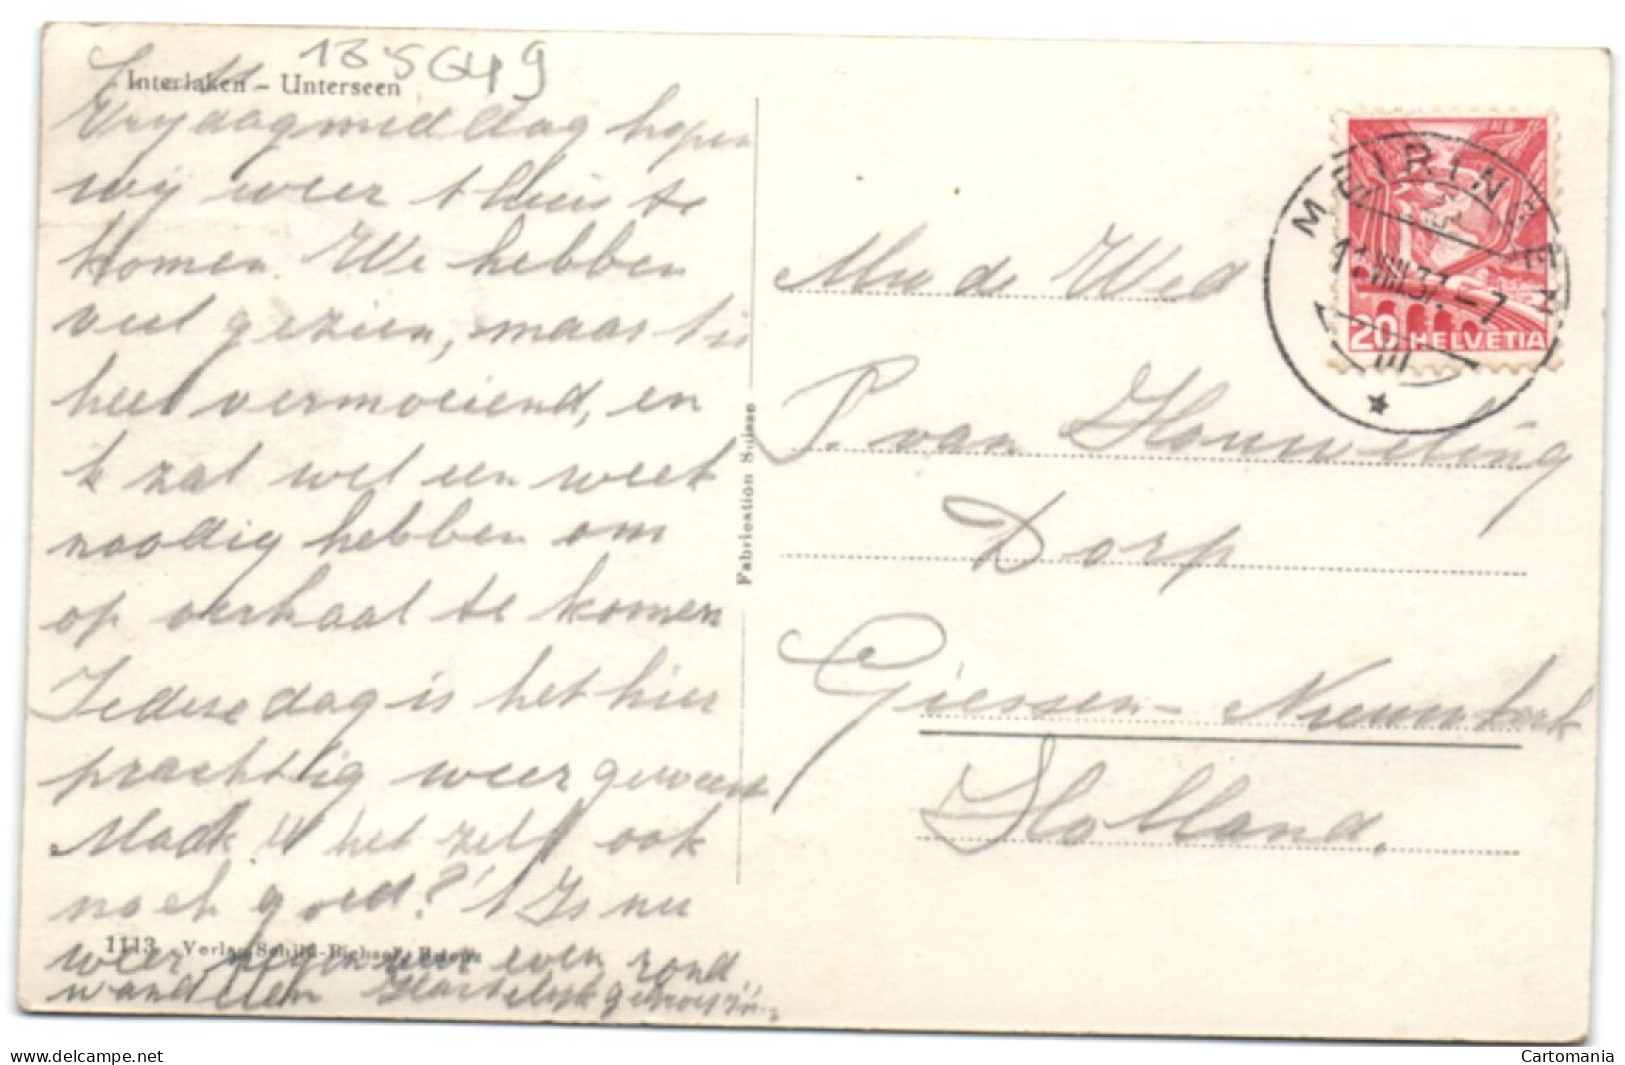 135649
Interlaken – Unterseen
Vrydagmiddag hopen
wij weer thuis te
komen. We hebben
veel gezien, maar 't is
heel vermoeiend, en
ik zal wel een week
noodig hebben om
op verhaal te komen
Iedere dag is het hier
prachtig weer geweest
Maak U het zelf ook
noch goed? 't Is nu
1113 Verlag Schild-Bichsel, Brienz
weer even rond
wandelen Hartelijk gegroet
Fabrication Suisse
MEIRINGEN
11.VIII.37.-7
III
20 HELVETIA
Mw de Wed
P. van Houweling
Dorp
Giessen-Nieuwkerk
Holland.
www.delcampe.net
Cartomania